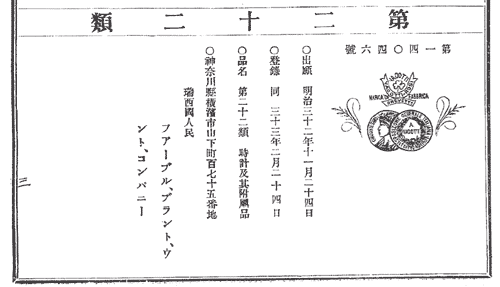 第二十二類
第一四〇四六號
MARCA DE FABRICA
〇出願 明治三十二年十一月二十四日
〇登錄 同 三十三年二月二十四日
〇品名 第二十二類 時計及其附屬品
〇神奈川縣橫濱市山下町百七十五番地
瑞西國人民
フアーブル、ブラント、ウ
ント、コンパニー